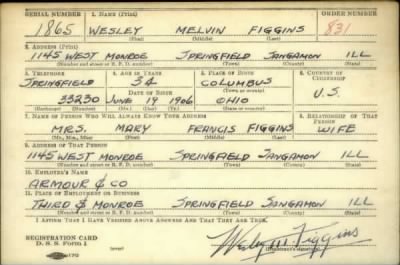 SERIAL NUMBER 1. NAME (Print) ORDER NUMBER
1865 WESLEY MELVIN FIGGINS 831
(First) (Middle) (Last)
2. ADDRESS (Print)
1145 WEST MONROE SPRINGFIELD SANGAMON ILL
(Number and street or R. F. D. number) (Town) (County) (State)
3. TELEPHONE 4. AGE IN YEARS 5. PLACE OF BIRTH 6. COUNTRY OF CITIZENSHIP
SPRINGFIELD 34 COLUMBUS
DATE OF BIRTH (Town or county) U.S.
33230 JUNE 19 1906 OHIO
(Exchange) (Number) (Mo.) (Day) (Yr.) (State or country)
7. NAME OF PERSON WHO WILL ALWAYS KNOW YOUR ADDRESS 8. RELATIONSHIP OF THAT PERSON
MRS. MARY FRANCIS FIGGINS WIFE
(Mr., Mrs., Miss) (First) (Middle) (Last)
9. ADDRESS OF THAT PERSON
1145 WEST MONROE SPRINGFIELD SANGAMON ILL
(Number and street or R. F. D. number) (Town) (County) (State)
10. EMPLOYER'S NAME
ARMOUR & CO
11. PLACE OF EMPLOYMENT OR BUSINESS
THIRD & MONROE SPRINGFIELD SANGAMON ILL
(Number and street or R. F. D. number) (Town) (County) (State)
I AFFIRM THAT I HAVE VERIFIED ABOVE ANSWERS AND THAT THEY ARE TRUE.
REGISTRATION CARD
D. S. S. Form 1
Wesley M Figgins
(Registrant's signature)